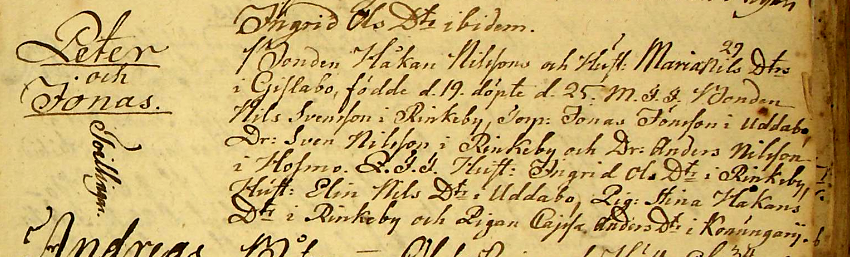 Ingrid Ols Dtr ibidem.
Peter
och
Jonas.
Tvillingar.
Bonden Håkan Nilssons och Hust: Maria Nils Dtrs 29
i Gislabo, födde d. 19. döpte d. 25. M. J. J. Bonden
Nils Svensson i Rinkeby, Torp: Jonas Jonsson i Uddabo,
Dr: Sven Nilsson i Rinkeby och Dr: Anders Nilsson
i Hofmo. Q. J. J. Hust: Ingrid Ols Dtr i Rinkeby,
Hust: Elin Nils Dtr i Uddabo, Pig: Stina Håkans
Dtr i Rinkeby och Pigan Cajsa Anders Dtr i
Andreas